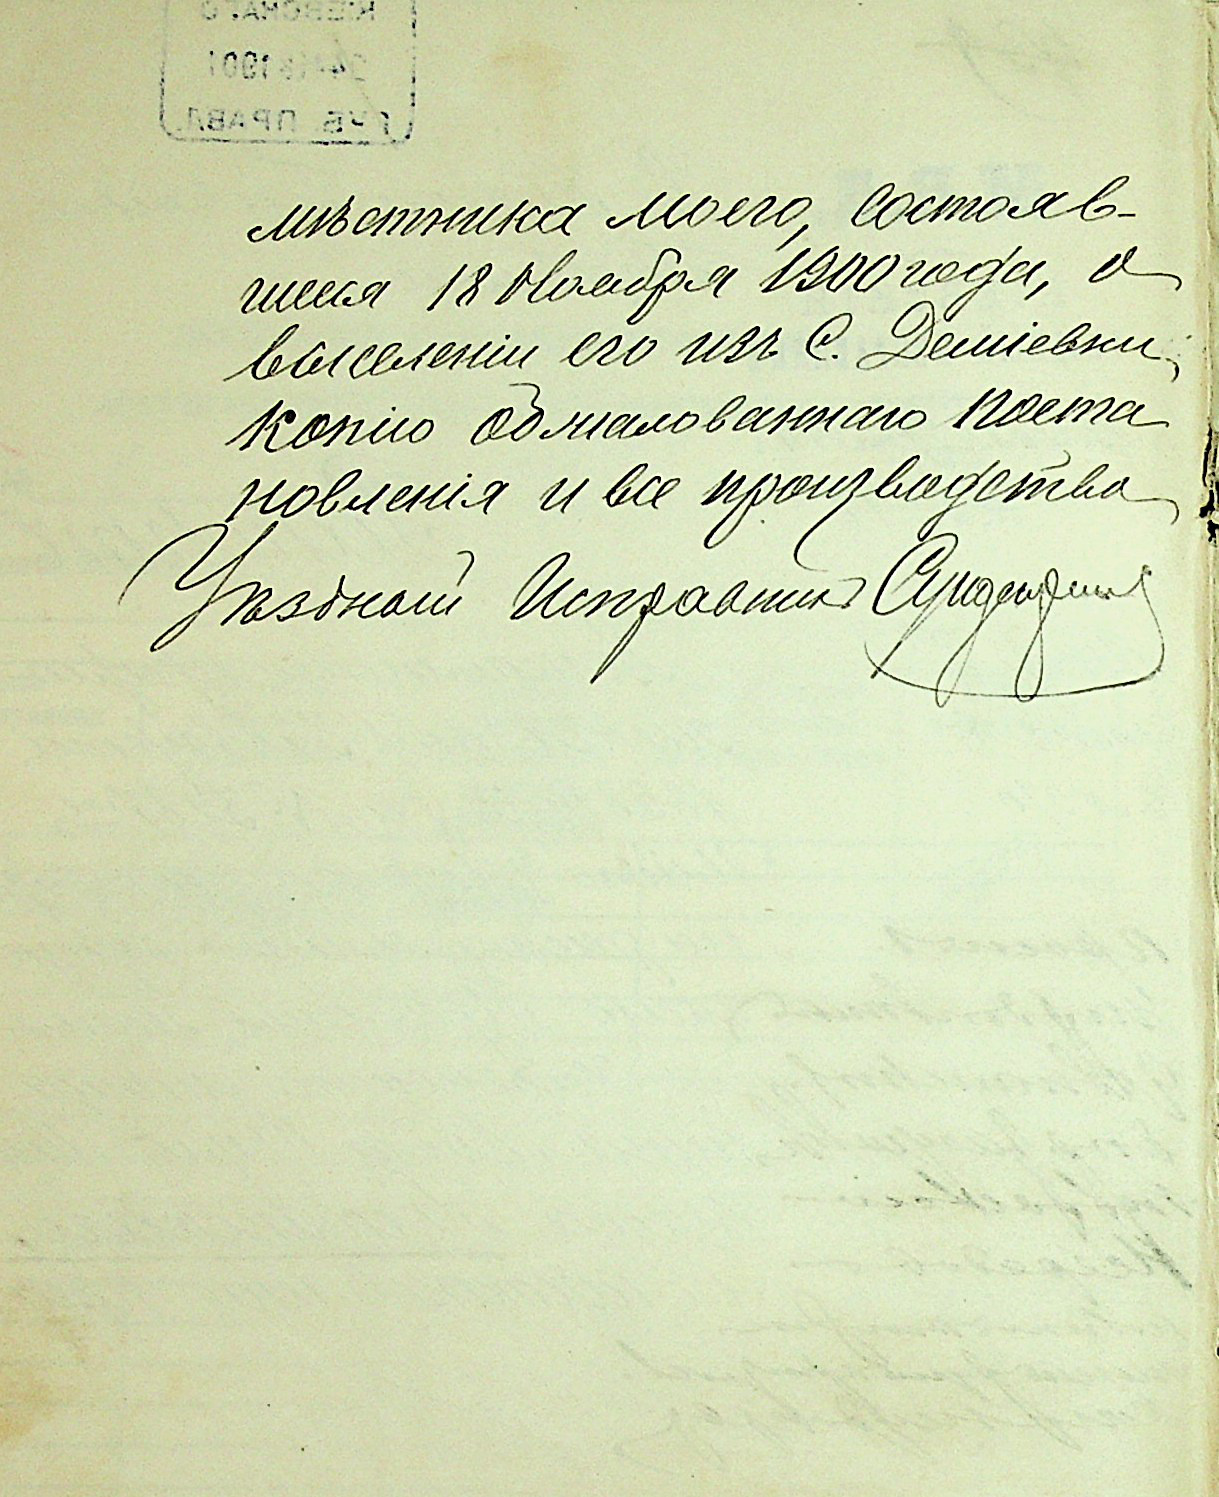 КІЕВСКАГО
1901
ГУБ. ПРАВЛ.
мѣстника моего, состояв-
шееся 18 Ноября 1900 года, о
выселеніи его изъ С. Деміевки,
копію обжалованнаго поста
новленія и все производство
Уѣздный Исправникъ